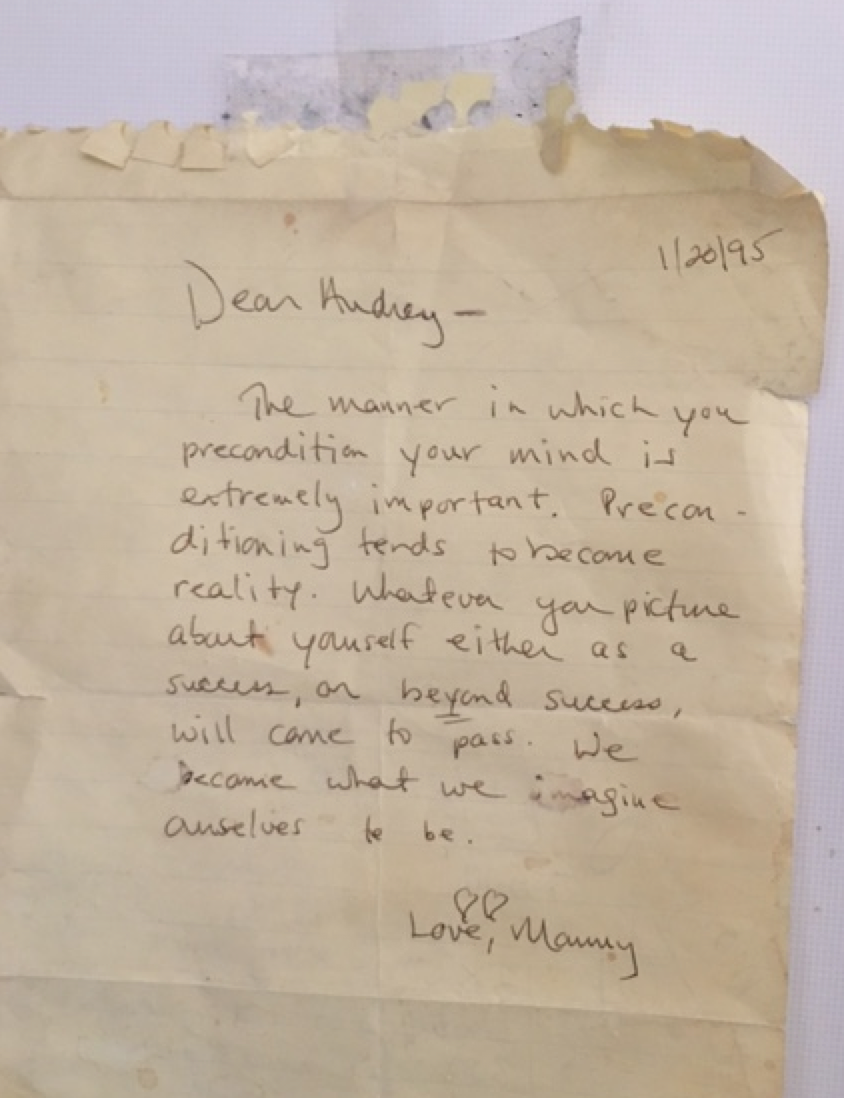 1/20/95
Dear Audrey —
The manner in which you
precondition your mind is
extremely important. Precon -
ditioning tends to become
reality. Whatever you picture
about yourself either as a
success, or beyond success,
will come to pass. We
become what we imagine
ourselves to be.
Love, Mammy